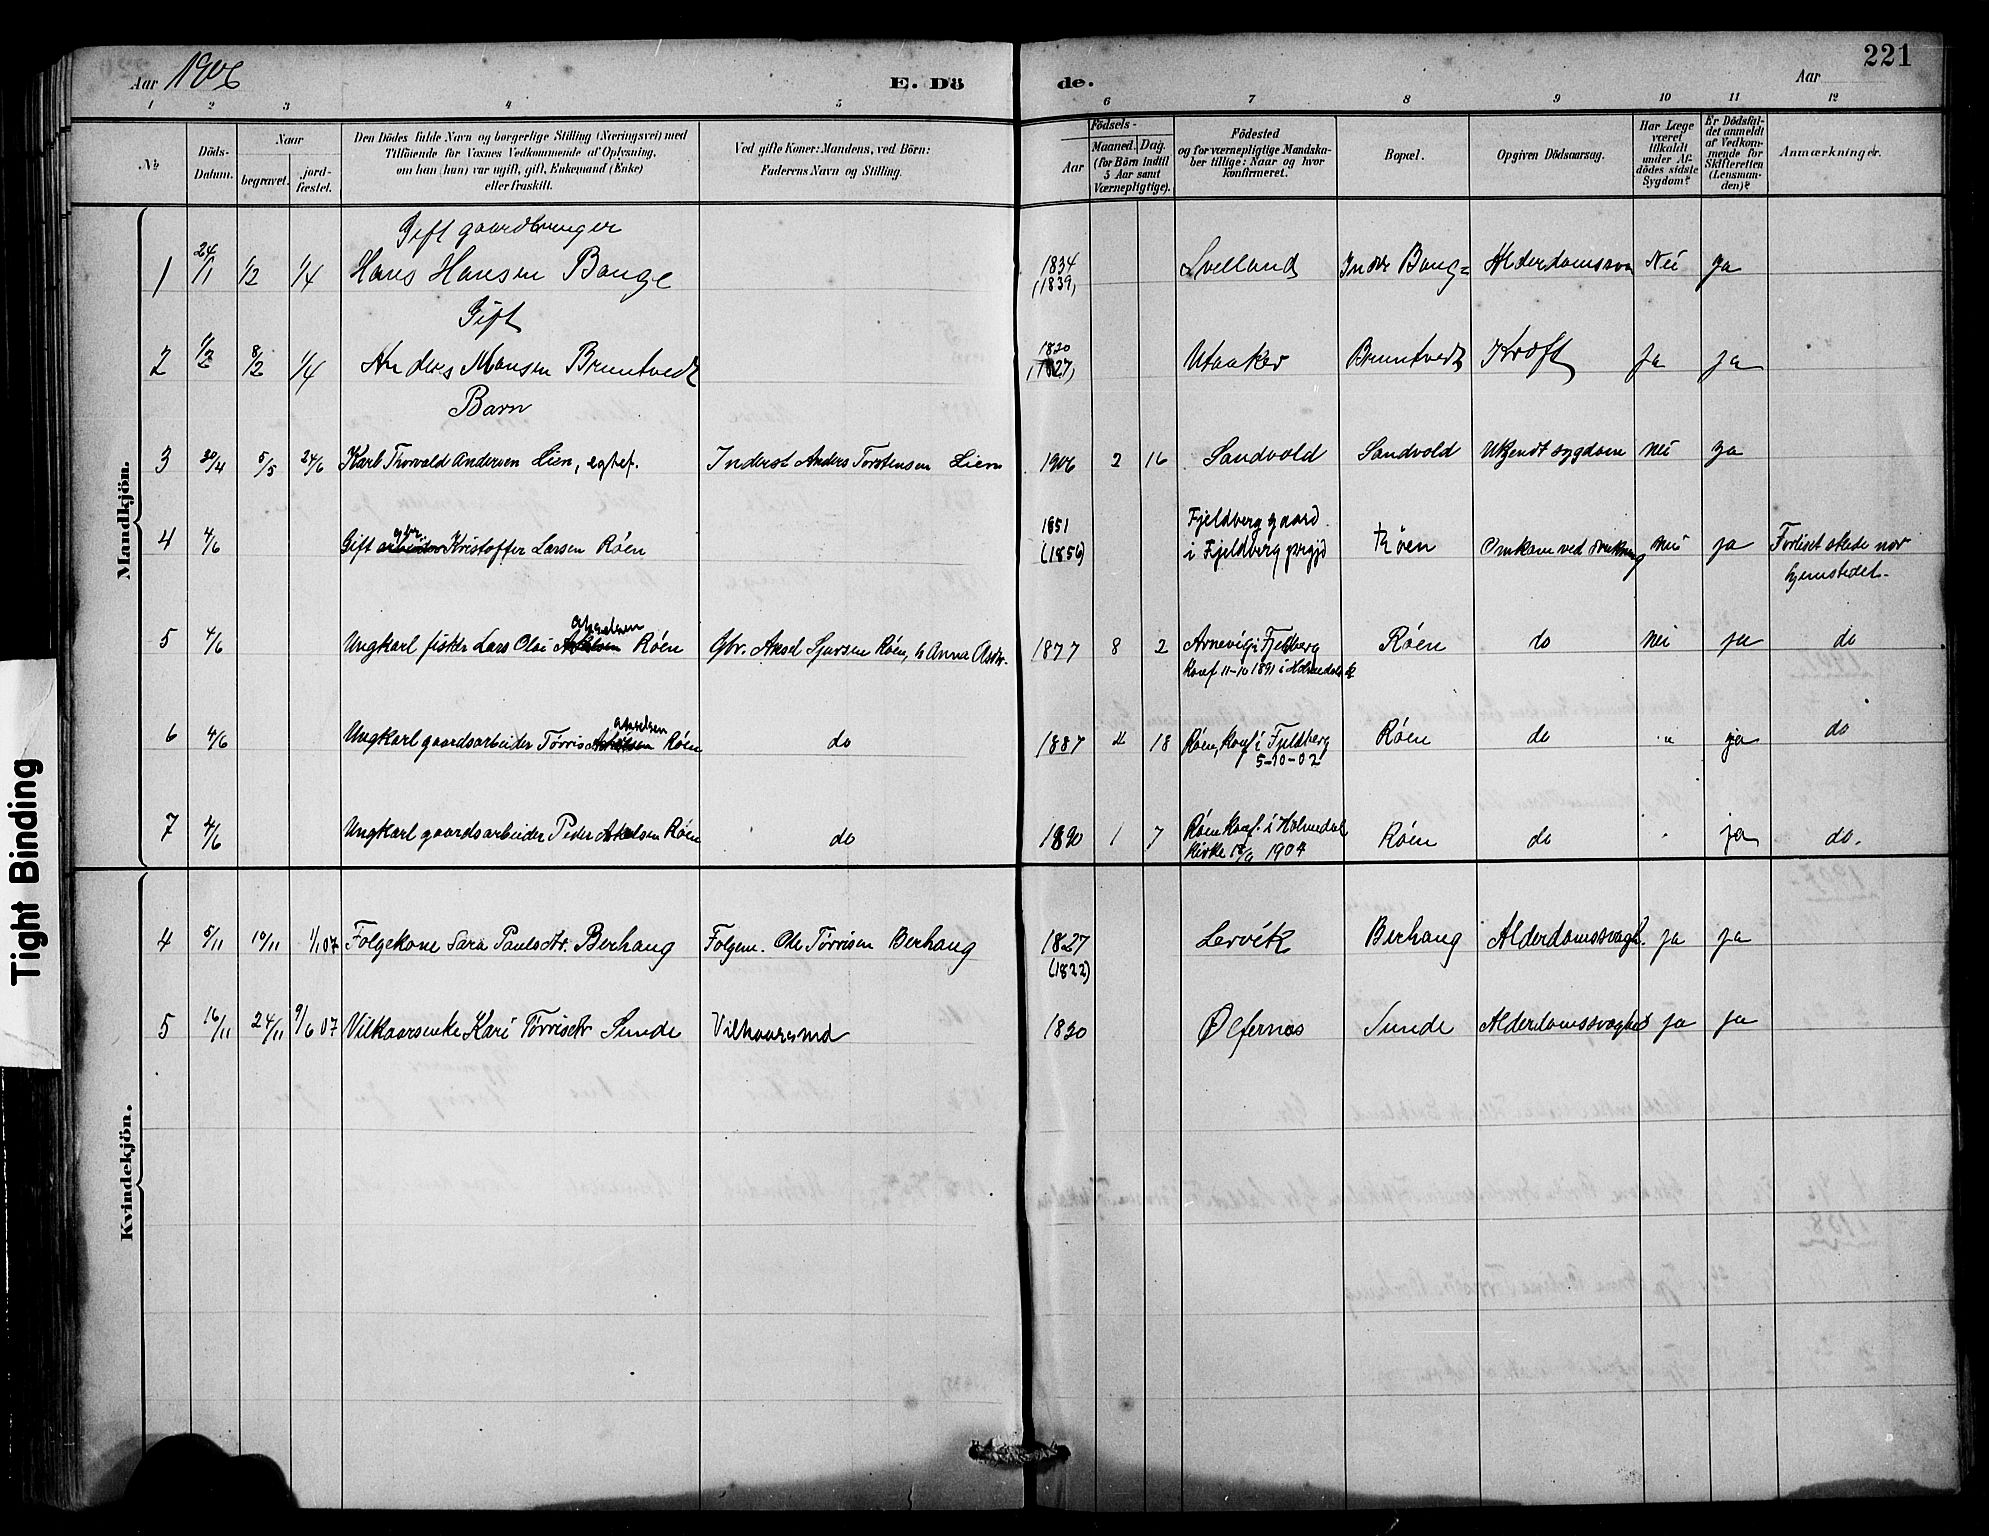 221
Aar 1906
E. Dö
de.
Aar
1 2 3 4 5 6 7 8 9 10 11 12
No
Döds-
Datum.
Naar
begravet.
jord-
fæstet.
Den Dödes fulde Navn og borgerlige Stilling (Næringsvei) med
Tilföiende for Voxnes Vedkommende af Oplysning,
om han (hun) var ugift, gift, Enkemand (Enke)
eller fraskilt.
Ved gifte Koner: Mandens, ved Börn:
Faderens Navn og Stilling.
Födsels-
Aar
Maaned. Dag.
(for Börn indtil
5 Aar samt
Værnepligtige).
Födested
og for værnepligtige Mandska-
ber tillige: Naar og hvor
konfirmeret.
Bopæl.
Opgiven Dödsaarsag.
Har Læge
været
tilkaldt
under Af-
dödes sidste
Sygdom?
Er Dödsfal-
det anmeldt
af Vedkom-
mende for
Skifteretten
(Lensman-
den)?
Anmærkninger.
Mandkjön.
Gift gaardbruger
1 24/1 1/2 1/4 Hans Hansen Bauge 1834 Nei ja
(1839)
Gift
2 1/2 8/2 1/4 Anders Monsen Bruntvedt 1820 Utaaker Bruntvedt Kræft ja ja
(1827)
Barn
3 30/4 5/5 24/6 Karl Thorvald Andersen Lien, egtef. Inderst Anders Torstensen Lien 1906 2 16 Sandvold Sandvold Ukjendt sygdom nei ja
gbr.
4 4/6 Gift arbeider Kristoffer Larsen Röen 1851 Fjeldberg gaard Röen Omkom ved drukning nei ja Forliset skede nær
(1856) i Fjeldberg prgjd hjemstedet.
Akselsen
5 4/6 Ungkarl fisker Lars Olai Röen Gbr. Aksel Sjursen Röen, 1877 8 2 Arnevig i Fjelberg Röen do nei ja do
Konf 11-10 1891 i Holmedals k
Akselsen
6 4/6 Ungkarl gaardsarbeider Tørris Röen do 1887 18 Röen, Konf i Fjeldberg Röen do " ja do
5-10-02
7 4/6 Ungkarl gaardsarbeider Peder Akselsen Röen do 1890 1 7 Röen Konf. i Holmedal Röen do " ja do.
Kirke 1904
Kvindekjön.
4 5/11 10/11 1/1 07 Folgekone Sara Paulsdtr. Berhaug Folgem. Ole Tørrisen Berhaug 1827 Lervik Berhaug Alderdomssvagh. ja ja
(1822)
5 16/11 24/11 9/6 07 Vilkaarsenke Kari Tørrisdtr Sunde Vilkaarsmd 1830 Ølfernes Sunde Alderdomssvaghed ja ja
Tight Binding